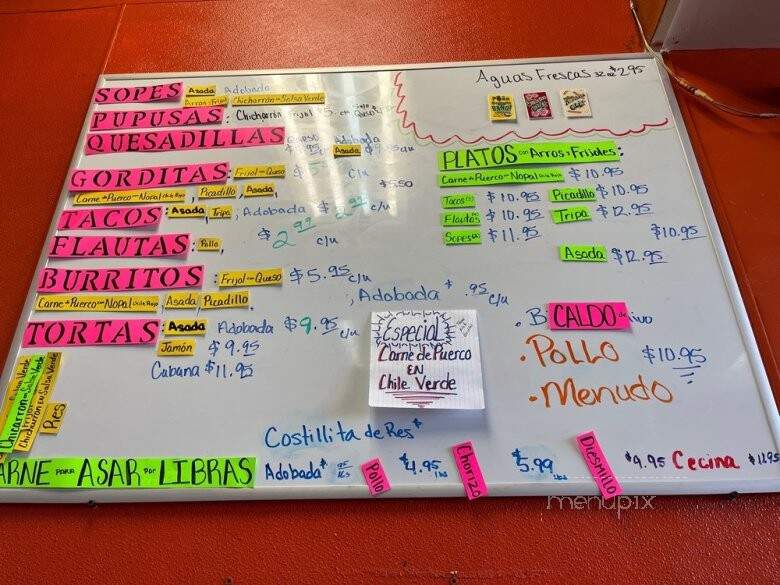 SOPES Asada Adobada
Arros y Frijol Chicharrón en Salsa Verde
PUPUSAS: Chicharrón Frijol
QUESADILLAS Queso Adobada
Asada
GORDITAS Frijol con Queso c/u
$5.50
Carne de Puerco con Nopal Chile Rojo, Picadillo, Asada,
TACOS: Asada, Tripa, Adobada $2.99 c/u
FLAUTAS: Pollo, $2.99 c/u
BURRITOS: Frijol con Queso $5.95 c/u
Carne de Puerco con Nopal Chile Rojo Asada Picadillo, Adobada $ .95 c/u
TORTAS: Asada Adobada $9.95 c/u
Jamón $9.95
Cubana $11.95
Chicarrón en Salsa Verde
Chicharrón en Salsa Verde
Res
Especial
Carne de Puerco
EN
Chile Verde
Aguas Frescas 32 oz $2.95
PLATOS con Arros y Frijoles:
Carne de Puerco con Nopal Chile Rojo $10.95
Tacos(3) $10.95 Picadillo $10.95
Flautas $10.95 Tripa $12.95
Sopes(2) $11.95 $10.95
Asada $12.95
CALDO de
• Pollo $10.95
• Menudo
Costillita de Res $
CARNE PARA ASAR POR LIBRAS Adobada $ Pollo $4.95 Lbs Chorizo $5.99 Lbs Diesmillo $9.95 Cecina $11.95
menupix